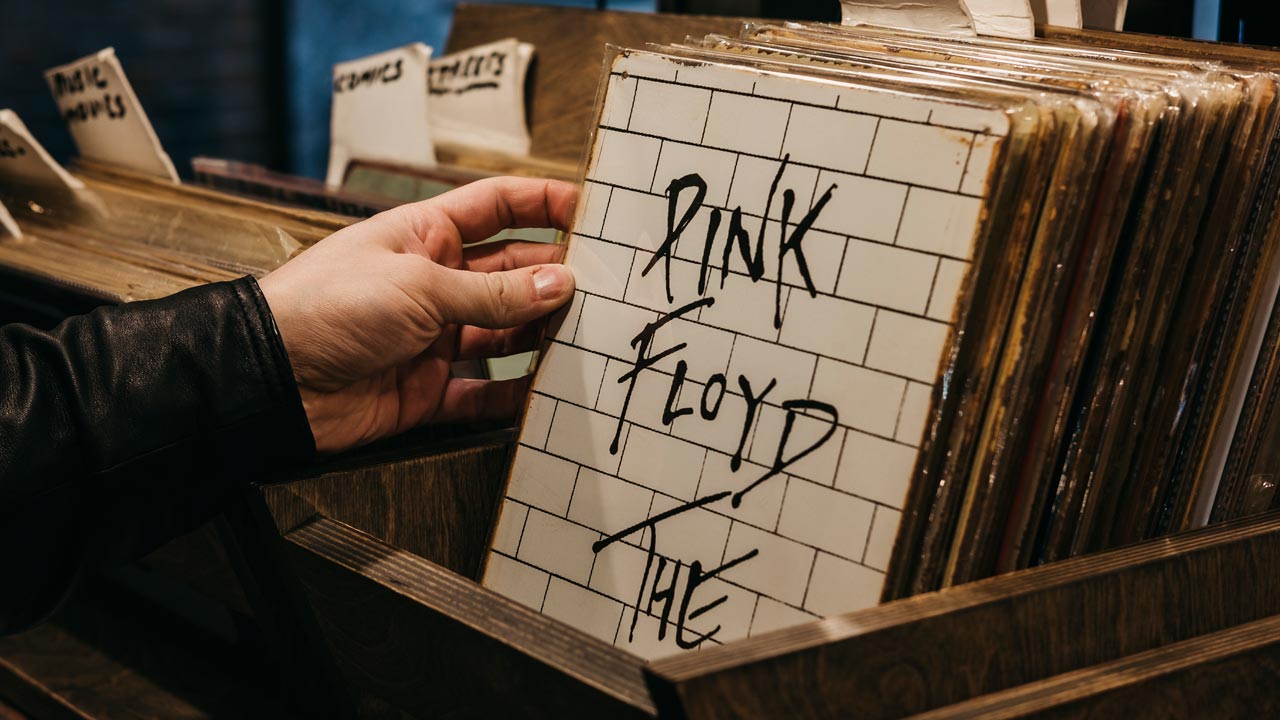 MUSIC
MOVIES
COMICS
STREETS
PINK
FLOYD
THE